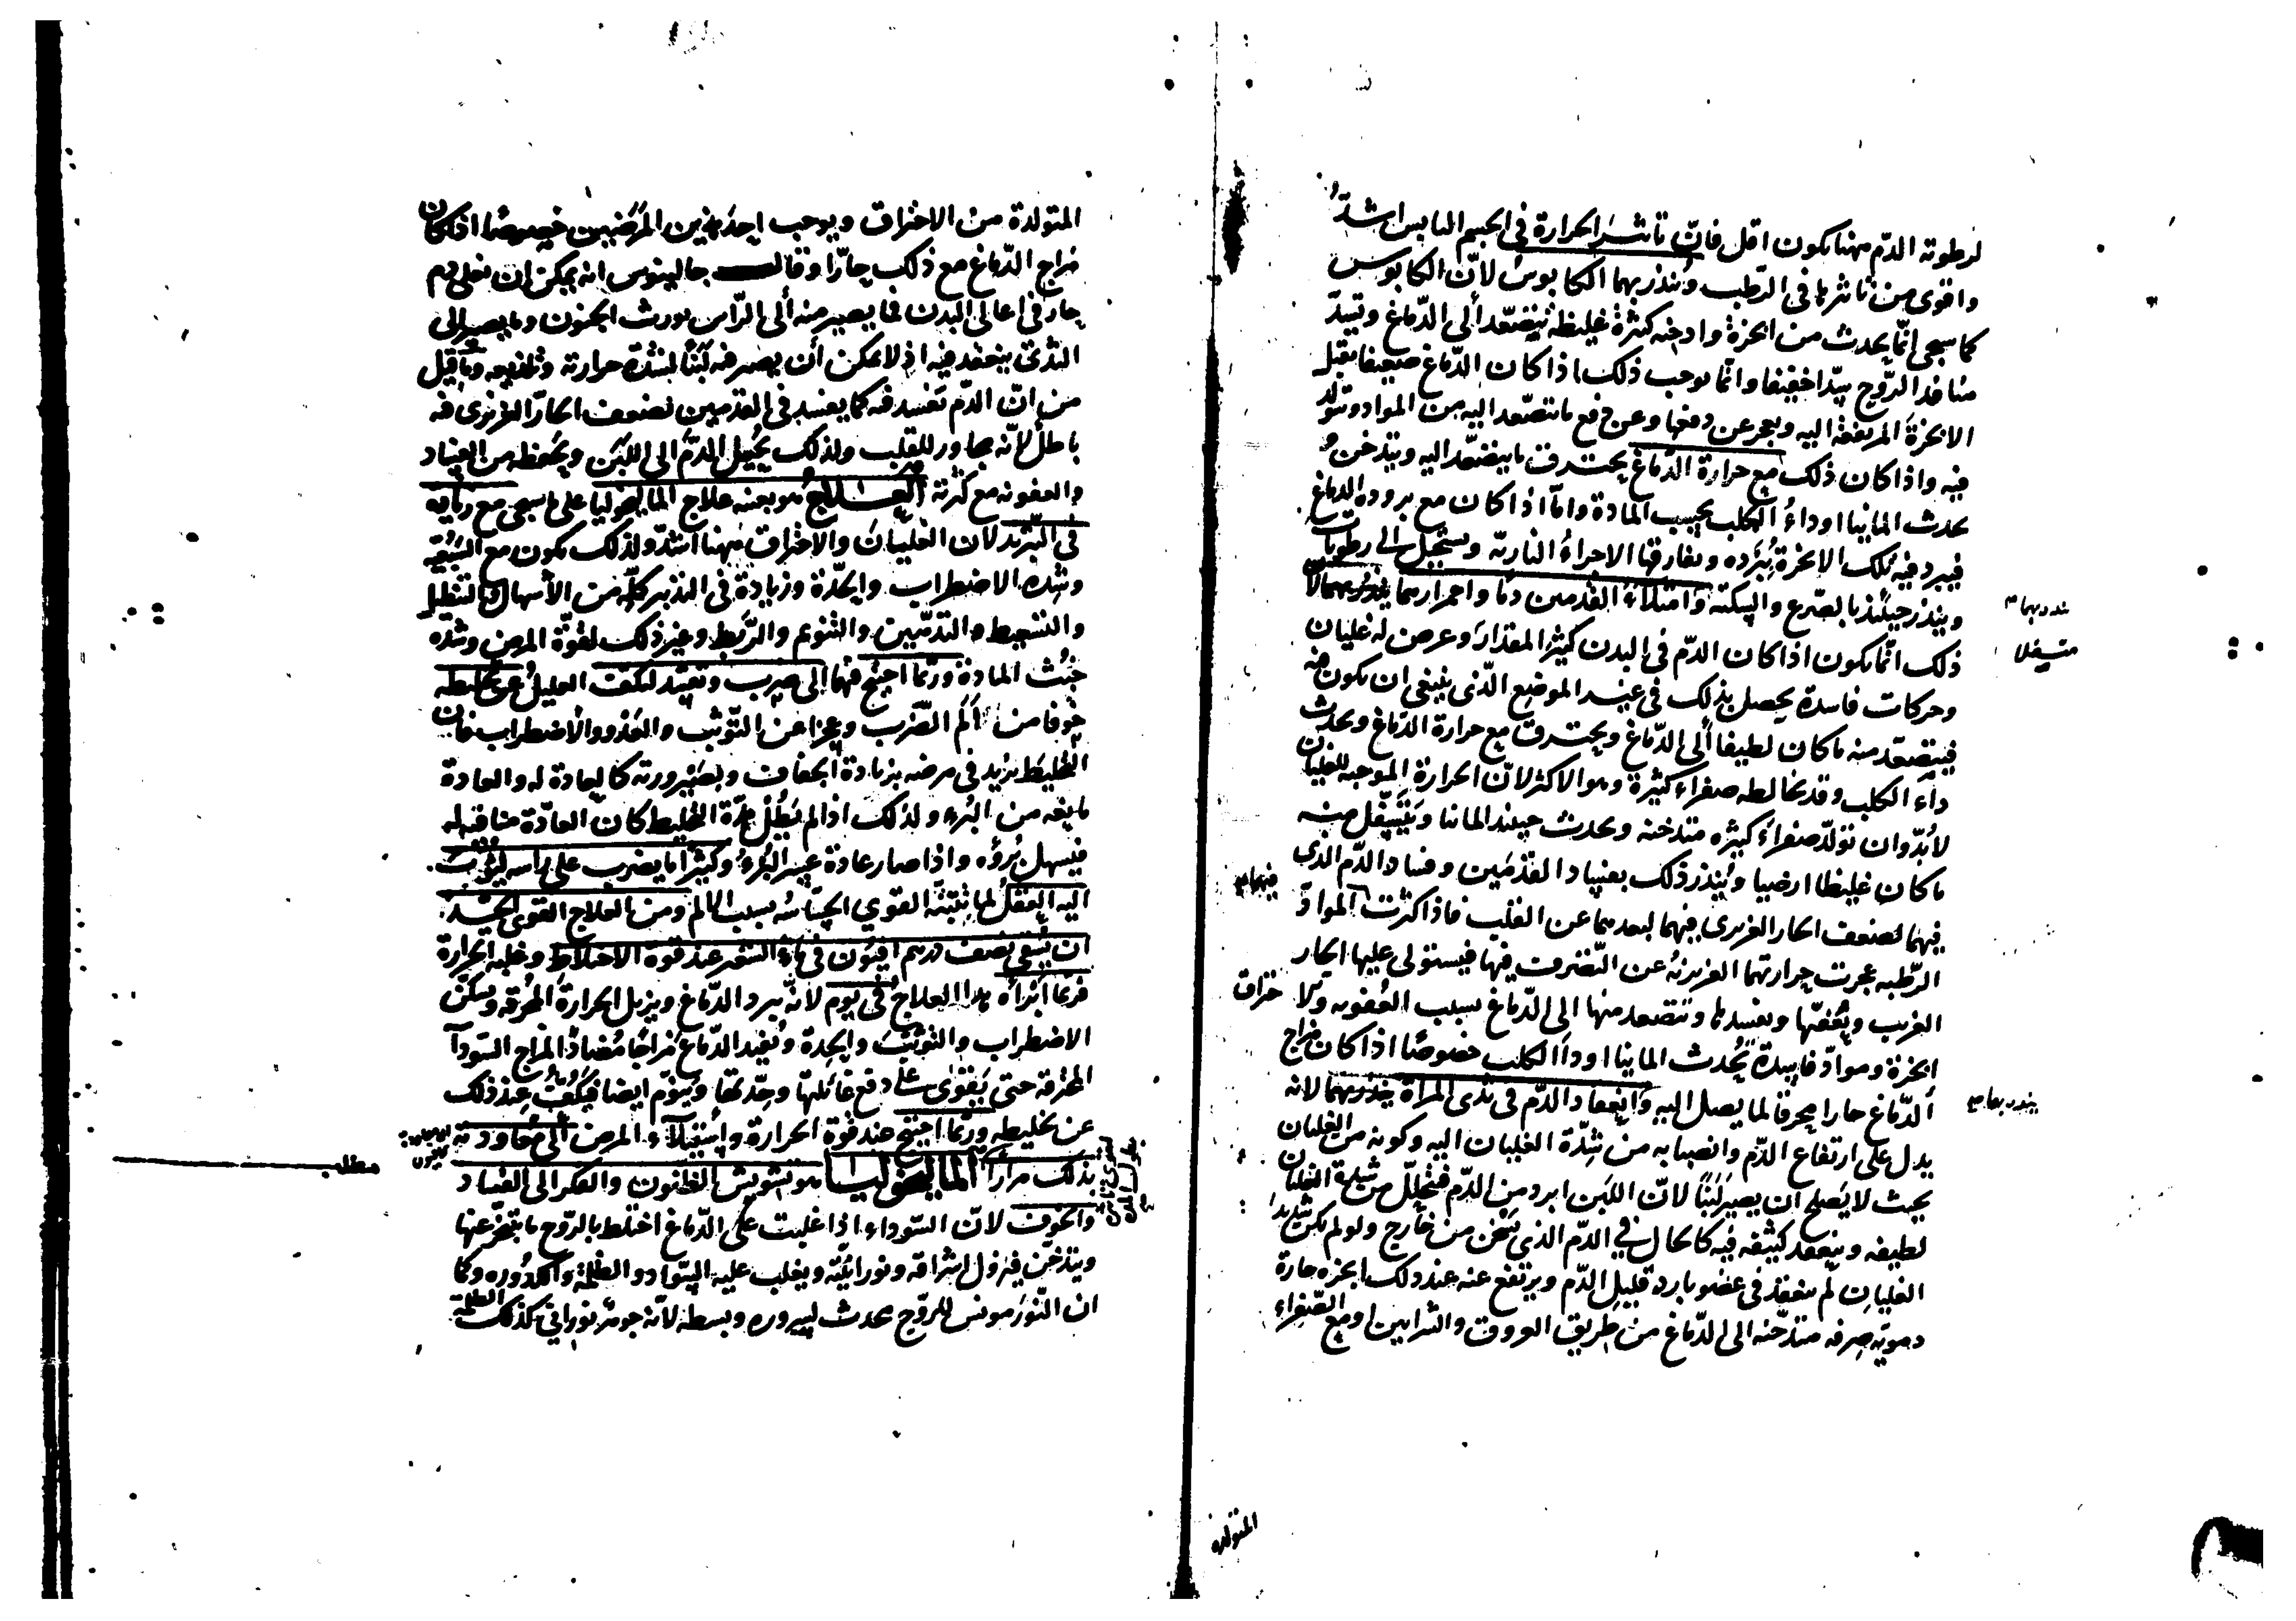 لرطوبة الدّم مهنا يكون اقل فانّ تاثير الحرارة في الجسم اليابس اشدّ
واقوى من تاثيرها في الرّطب وينذر بهما الكابوس لانّ الكابوس
كما سيجى انّما يحدث من ابخرة وادخنه كثيرة غليظه تتصعّد الى الدّماغ وتسدّ
منافذ الرّوح سدّا خفيفا وانّما يوجب ذلك اذا كان الدّماغ ضعيفا يقبل
الابخرة المرتفعة اليه ويعجز عن دفعها وعن دفع ما يتصّعد اليه من المواد وتتولّد
فيه واذا كان ذلك مع حرارة الدّماغ يحترق ما يتصّعد اليه ويتدخن و
يحدث المانيا او داء الكلب بحسب المادة وامّا اذا كان مع برودة الدماغ
فيبرد فيه تلك الابخرة ببرده ويفارقها الاجزاء الناريّة ويستحيل الى رطوبات
وينذر حينئذ بالصّرع والسكتة وامتلاء القدمين دمًا واحمرارهما ينذر بهما لانّ
ذلك انّما يكون اذا كان الدّم في البدن كثير المقدار وعرض له غليان
وحركات فاسدة يحصل بذلك في غير الموضع الّذى ينبغى ان يكون فيه
فيتصعّد منه ما كان لطيفا الى الدّماغ ويحترق مع حرارة الدّماغ ويحدث
داء الكلب وقد يخالطه صفراء كثيرة وهو الاكثر لانّ الحرارة الموجبه للغليان
لا بدّ وان تولّد صفراء كثيره متدخنه ويحدث حينئذ المانيا ويتسفّل منه
ما كان غليظا ارضيا وينذر ذلك بفساد القدمين وفساد الدّم الذى
فيهما لضعف الحار الغريزى فيهما لبعدهما عن القلب فاذا كثرت الموادّ
الرّطبه عجزت حرارتهما الغريزيّة عن التّصرف فيها فيستولى عليها الحار
الغريب ويعفّنها ويفسدها ويتصعد منها الى الدّماغ بسبب العفونه والاحتراق
ابخرة وموادّ فاسدة يحدث المانيا او داء الكلب خصوصًا اذا كان مزاج
الدّماغ حارا محرقا لما يصل اليه وانعقاد الدّم في ثدى المراة ينذر بهما لانه
يدل على ارتفاع الدّم وانصبابه من شدّة الغليان اليه وكونه من الغليان
بحيث لا يصلح ان يصير لبنًا لانّ اللبن ابرد من الدّم فتحلّل من شدّة الغليان
لطيفه وينعقد كثيفه فيه كالحال في الدّم الذى يسخن من خارج ولو لم يكن شديد
الغليان لم ينعقد في عضو بارد قليل الدّم ويرتفع عنه عند ذلك ابخره حارة
دمويّه صرفه متدخّنه الى الدّماغ من طريق العروق والشرايين او مع الصّفراء
ينذر بهما
متسفلا
فيهما
ينذر بهما
المتولدة
المتولدة من الاحتراق ويوجب احد هذين المرضين خصوصًا اذا كان
مزاج الدّماغ مع ذلك حارّا وقال جالينوس انه يمكن ان يغلى دم
حار في اعالى البدن فما يصير منه الى الرّاس يورث الجنون وما يصير الى
الثدى ينعقد فيه اذ لا يمكن أن يصير فيه لبنًا لشدّة حرارته وتلذيعه وما قيل
من انّ الدّم يفسد فيه كما يفسد في القدمين لضعف الحارّ الغريزى فيه
باطل لانّه مجاور للقلب ولذلك يحيل الدّم الى اللبن ويحفظه من الفساد
والعفونه مع كثرته العلاج هو بعينه علاج الماليخوليا على ما سيجى مع زياده
في التّبريد لان الغليان والاحتراق مهنا اشدّ ولذلك يكون مع السبعيّه
وشدّة الاضطراب والحدّة وزيادة في التدبير كلّه من الاسهال والتنطيل
والتسعيط والتدهين والتنويم والرّبط وغير ذلك لقوّة المرض وشدّة
خبث المادة وربّما احتيج فيهما الى ضرب وتقييد ليكفّ العليل عن تخليطه
خوفا من الم الضّرب وعجزا عن التّوثّب والعَدْو والاضطراب فان
التخليط يزيد في مرضه بزيادة الجفاف وبصيرورته كالعادة له والعادة
مانعه من البرء ولذلك اذا لم يطل مدّة التخليط كان العادّة مناقبله
فيسهل برؤه واذا صار عادة عسر البرء وكثيرا ما يضرب على راسه ليثوب
اليه العقل لما يتنبّه القوى الحسّاسه بسبب الالم ومن العلاج القوى الجيّد
ان يسقى نصف درهم افيون في ماء الشعير عند قوّة الاختلاط وغلبه الحرارة
فربّما أبراه هذا العلاج في يوم لانّه يبرد الدّماغ ويزيل الحرارة المحرقه ويسكّن
الاضطراب والتوثّب والحدة ويفيد الدّماغ مزاجا مضادّا لمزاج السّوداء
المحرقه حتى يقوى على دفع غائلتها وحدّتها وينوّم ايضا فيكفّ عند ذلك
عن تخليطه وربّما احتيج عند قوّة الحرارة واستيلاء المرض الى معاودته
بذلك مرارا الماليخوليا هو تشويش الظنون والفكر الى الفساد
والخوف لانّ السّوداء اذا غلبت على الدّماغ اختلط بالرّوح ما يتبخّر عنها
ويتدخّن فيزول اشراقه ونورانيّته ويغلب عليه السّواد والظلمة والكدوره وكما
ان النّور مونس للرّوح محدث لسروره وبسطه لانّه جوهر نورانى كذلك الظلمة
مطلب